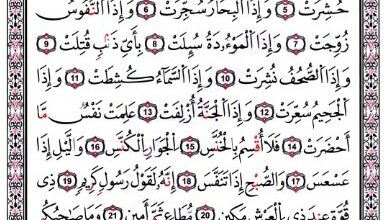 حُشِرَتْ ٥ وَإِذَا ٱلْبِحَارُ سُجِّرَتْ ٦ وَإِذَا ٱلنُّفُوسُ
زُوِّجَتْ ٧ وَإِذَا ٱلْمَوْءُۥدَةُ سُئِلَتْ ٨ بِأَىِّ ذَنۢبٍ قُتِلَتْ ٩
وَإِذَا ٱلصُّحُفُ نُشِرَتْ ١٠ وَإِذَا ٱلسَّمَآءُ كُشِطَتْ ١١ وَإِذَا
ٱلْجَحِيمُ سُعِّرَتْ ١٢ وَإِذَا ٱلْجَنَّةُ أُزْلِفَتْ ١٣ عَلِمَتْ نَفْسٌ مَّآ
أَحْضَرَتْ ١٤ فَلَآ أُقْسِمُ بِٱلْخُنَّسِ ١٥ ٱلْجَوَارِ ٱلْكُنَّسِ ١٦ وَٱلَّيْلِ إِذَا
عَسْعَسَ ١٧ وَٱلصُّبْحِ إِذَا تَنَفَّسَ ١٨ إِنَّهُۥ لَقَوْلُ رَسُولٍ كَرِيمٍ ١٩ ذِى
قُوَّةٍ عِندَ ذِى ٱلْعَرْشِ مَكِينٍ ٢٠ مُّطَاعٍ ثَمَّ أَمِينٍ ٢١ وَمَا صَاحِبُكُم